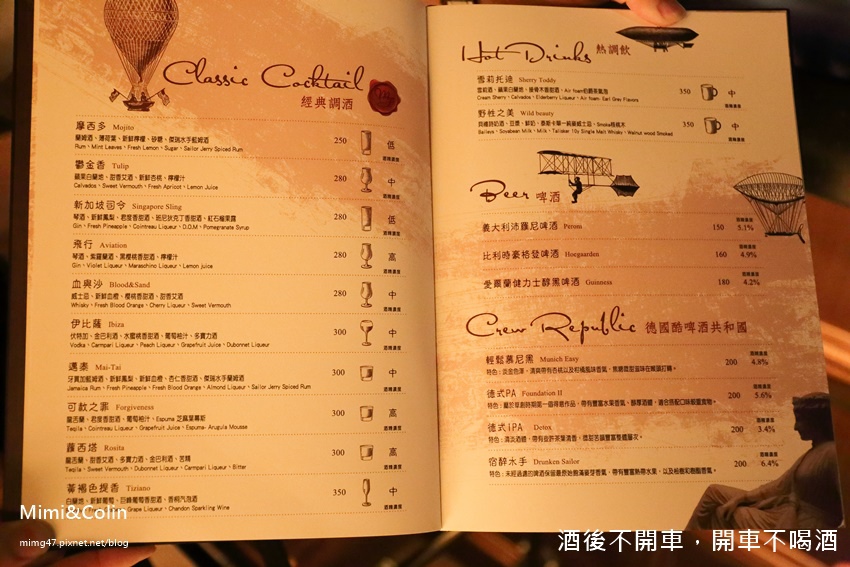 Classic Cocktail
經典調酒
摩西多 Mojito
蘭姆酒、薄荷葉、新鮮檸檬、砂糖、傑瑞水手藍姆酒 250 低
Rum、Mint Leaves、Fresh Lemon、Sugar、Sailor Jerry Spiced Rum 酒精濃度
鬱金香 Tulip
蘋果白蘭地、甜香艾酒、新鮮杏桃、檸檬汁 280 中
Calvados、Sweet Vermouth、Fresh Apricot、Lemon Juice 酒精濃度
新加坡司令 Singapore Sling
琴酒、新鮮鳳梨、君度香甜酒、班尼狄克丁香甜酒、紅石榴果露 280 低
Gin、Fresh Pineapple、Cointreau Liqueur、D.O.M、Pomegranate Syrup 酒精濃度
飛行 Aviation
琴酒、紫羅蘭酒、黑櫻桃香甜酒、檸檬汁 280 高
Gin、Violet Liqueur、Maraschino Liqueur、Lemon juice 酒精濃度
血與沙 Blood&Sand
威士忌、新鮮血橙、櫻桃香甜酒、甜香艾酒 280 中
Whisky、Fresh Blood Orange、Cherry Liqueur、Sweet Vermouth 酒精濃度
伊比薩 Ibiza
伏特加、金巴利酒、水蜜桃香甜酒、葡萄柚汁、多寶力酒 300 中
Vodka、Campari Liqueur、Peach Liqueur、Grapefruit Juice、Dubonnet Liqueur 酒精濃度
邁泰 Mai-Tai
牙買加藍姆酒、新鮮鳳梨、新鮮血橙、杏仁香甜酒、傑瑞水手蘭姆酒 300 中
Jamaica Rum、Fresh Pineapple、Fresh Blood Orange、Almond Liqueur、Sailor Jerry Spiced Rum 酒精濃度
可赦之罪 Forgiveness
龍舌蘭、君度香甜酒、葡萄柚汁、Espuma 芝麻葉慕斯 300 高
Teqila、Cointreau Liqueur、Grapefruit Juice、Espuma- Arugula Mousse 酒精濃度
蘿西塔 Rosita
龍舌蘭、甜香艾酒、多寶力酒、金巴利酒、苦精 300 高
Teqila、Sweet Vermouth、Dubonnet Liquor、Campari Liqueur、Bitter 酒精濃度
黃褐色提香 Tiziano
白蘭地、新鮮葡萄、巨峰葡萄香甜酒、香桐汽泡酒 350 中
Grape、Grape Liqueur、Chandon Sparkling Wine 酒精濃度
Hot Drinks 熱調飲
雪莉托迪 Sherry Toddy
雪莉酒、蘋果白蘭地、接骨木香甜酒、Air foam伯爵茶氣泡 350 中
Cream Sherry、Calvados、Elderberry Liqueur、Air foam Earl Grey Flavors 酒精濃度
野性之美 Wild beauty
貝禮詩奶酒、豆漿、鮮奶、泰斯卡單一純麥威士忌、Smoke核桃木 350 中
Baileys、Soyabean Milk、Milk、Talisker 10y Single Malt Whisky、Walnut wood Smoked 酒精濃度
Beer 啤酒
義大利沛羅尼啤酒 Peroni 150 酒精濃度 5.1%
比利時豪格登啤酒 Hoegaarden 160 酒精濃度 4.9%
愛爾蘭健力士醇黑啤酒 Guinness 180 酒精濃度 4.2%
Crew Republic 德國酷啤酒共和國
輕鬆慕尼黑 Munich Easy 200 酒精濃度 4.8%
特色：炎金色澤，清爽帶有杏桃以及柑橘風味香氣，焦糖微甜滋味在嘴頭打轉。
德式PA Foundation II 200 酒精濃度 5.6%
德式IPA Detox 200 酒精濃度 3.4%
特色：清爽酒體，帶有些許茶葉清香，微甜苦韻豐富整體層次。
宿醉水手 Drunken Sailor 200 酒精濃度 6.4%
Mimi&Colin
mimg47.pixnet.net/blog
酒後不開車，開車不喝酒